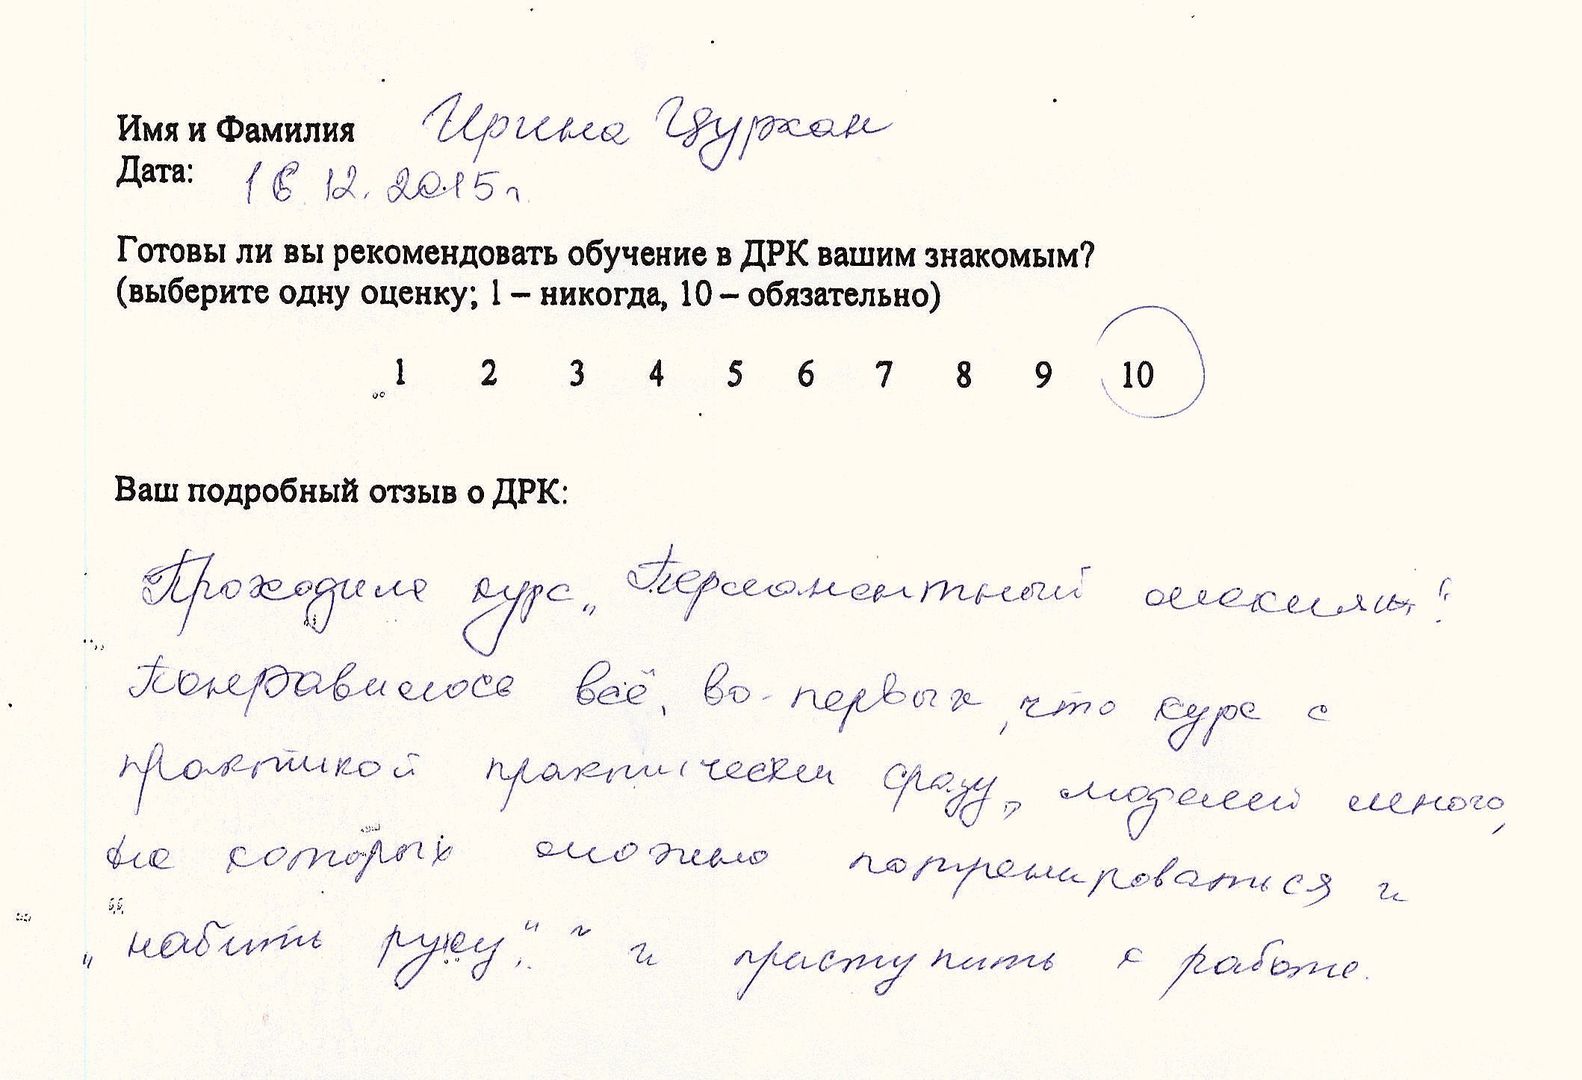 Имя и Фамилия Ирина Цуркан
Дата: 16 12. 2015 г.
Готовы ли вы рекомендовать обучение в ДРК вашим знакомым?
(выберите одну оценку; 1 – никогда, 10 – обязательно)
1 2 3 4 5 6 7 8 9 10
Ваш подробный отзыв о ДРК:
Проходила курс „Перманентный макияж“.
Понравилось всё, во-первых, что курс с
практикой практически сразу, моделей много,
на которых можно потренироваться и
„набить руку“, и приступить к работе.